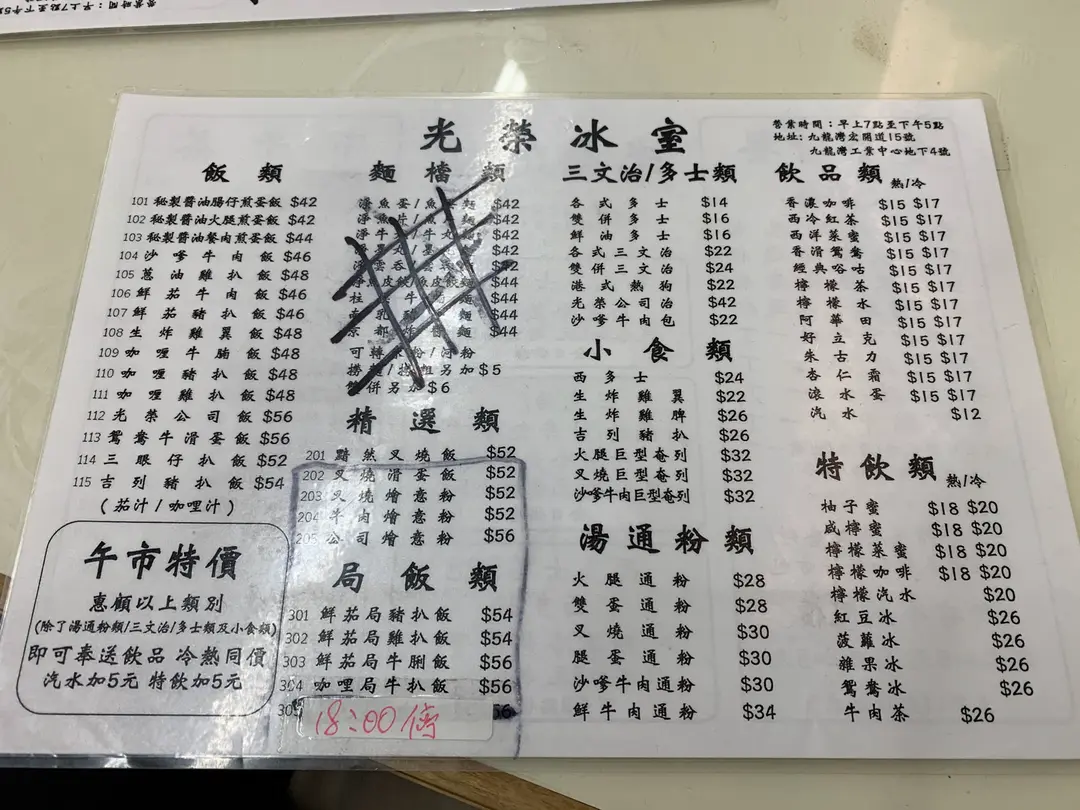 營業時間：早上7點至下午5點
光榮冰室
營業時間：早上7點至下午5點
地址：九龍灣宏開道15號
九龍灣工業中心地下4號
飯類
101 秘製醬油腸仔煎蛋飯 $42
102 秘製醬油火腿煎蛋飯 $42
103 秘製醬油餐肉煎蛋飯 $44
104 沙嗲牛肉飯 $46
105 蔥油雞扒飯 $48
106 鮮茄牛肉飯 $46
107 鮮茄豬扒飯 $46
108 生炸雞翼飯 $48
109 咖喱牛腩飯 $48
110 咖喱豬扒飯 $48
111 咖喱雞扒飯 $48
112 光榮公司飯 $56
113 鴛鴦牛滑蛋飯 $56
114 三眼仔扒飯 $52
115 吉列豬扒飯 $54
(茄汁/咖喱汁)
午市特價
惠顧以上類別
(除了湯通粉類/三文治/多士類及小食類)
即可奉送飲品 冷熱同價
汽水加5元 特飲加5元
麵檔類
淨魚蛋/魚 麵 $42
淨魚片/魚 麵 $42
淨牛 /牛丸 $42
淨墨丸/墨 $42
淨雲吞/雲 $42
淨魚皮餃/魚皮餃麵 $44
柱 牛 麵 $44
南乳 麵 $44
京都炸醬麵 $44
可轉米粉/河粉
撈 / 另加 $5
雙併另加 $6
精選類
201 黯然叉燒飯 $52
202 叉燒滑蛋飯 $52
203 叉燒燴意粉 $52
204 牛肉燴意粉 $52
205 公司燴意粉 $56
局飯類
301 鮮茄局豬扒飯 $54
302 鮮茄局雞扒飯 $54
303 鮮茄局牛脷飯 $56
304 咖喱局牛扒飯 $56
30 56
18:00 停
三文治/多士類
各式多士 $14
雙併多士 $16
鮮油多士 $16
各式三文治 $22
雙併三文治 $24
港式熱狗 $22
光榮公司治 $42
沙嗲牛肉包 $22
小食類
西多士 $24
生炸雞翼 $22
生炸雞髀 $26
吉列豬扒 $26
火腿巨型奄列 $32
叉燒巨型奄列 $32
沙嗲牛肉巨型奄列 $32
湯通粉類
火腿通粉 $28
雙蛋通粉 $28
叉燒通粉 $30
腿蛋通粉 $30
沙嗲牛肉通粉 $30
鮮牛肉通粉 $34
飲品類 熱/冷
香濃咖啡 $15 $17
西冷紅茶 $15 $17
西洋菜蜜 $15 $17
香滑鴛鴦 $15 $17
經典唂咕 $15 $17
檸檬茶 $15 $17
檸檬水 $15 $17
阿華田 $15 $17
好立克 $15 $17
朱古力 $15 $17
杏仁霜 $15 $17
滾水蛋 $15 $17
汽水 $12
特飲類 熱/冷
柚子蜜 $18 $20
咸檸蜜 $18 $20
檸檬菜蜜 $18 $20
檸檬咖啡 $18 $20
檸檬汽水 $20
紅豆冰 $26
菠蘿冰 $26
雜果冰 $26
鴛鴦冰 $26
牛肉茶 $26